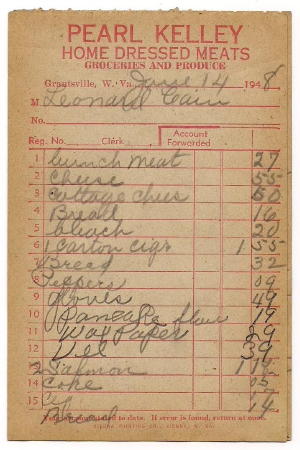 PEARL KELLEY
HOME DRESSED MEATS
GROCERIES AND PRODUCE
Grantsville, W. Va. June 14 1948
M Leonard Cain
No.
Reg. No. Clerk Account Forwarded
1 Lunch meat 27
2 Cheese 55
3 Cottage chees 50
4 Bread 16
5 bleach 20
6 1 carton cigs 1 55
7 Bread 32
8 Peppers 09
9 Gloves 49
10 Pancake flour 19
11 Wax Paper 29
12 Vel 39
13 2 Salmon 1
14 Coke 05
15 17
Bread 14
Your account stated to date. If error is found, return at once.